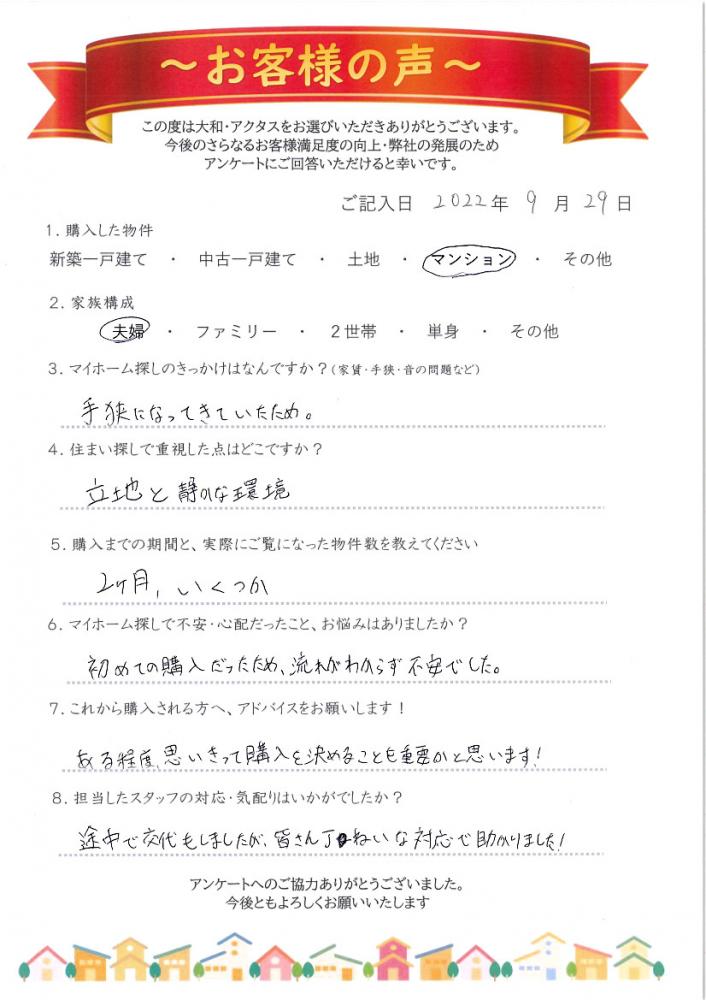 ～お客様の声～
この度は大和・アクタスをお選びいただきありがとうございます。
今後のさらなるお客様満足度の向上・弊社の発展のため
アンケートにご回答いただけると幸いです。
ご記入日 2022年 9月 29日
1. 購入した物件
新築一戸建て ・ 中古一戸建て ・ 土地 ・ マンション ・ その他
2. 家族構成
夫婦 ・ ファミリー ・ 2世帯 ・ 単身 ・ その他
3. マイホーム探しのきっかけはなんですか？(家賃・手狭・音の問題など)
手狭になってきていたため。
4. 住まい探しで重視した点はどこですか？
立地と静かな環境
5. 購入までの期間と、実際にご覧になった物件数を教えてください
2ヶ月, いくつか
6. マイホーム探しで不安・心配だったこと、お悩みはありましたか？
初めての購入だったため、流れがわからず不安でした。
7. これから購入される方へ、アドバイスをお願いします！
ある程度、思いきって購入を決めることも重要かと思います！
8. 担当したスタッフの対応・気配りはいかがでしたか？
途中で交代もしましたが、皆さん丁ねいな対応で助かりました！
アンケートへのご協力ありがとうございました。
今後ともよろしくお願いいたします